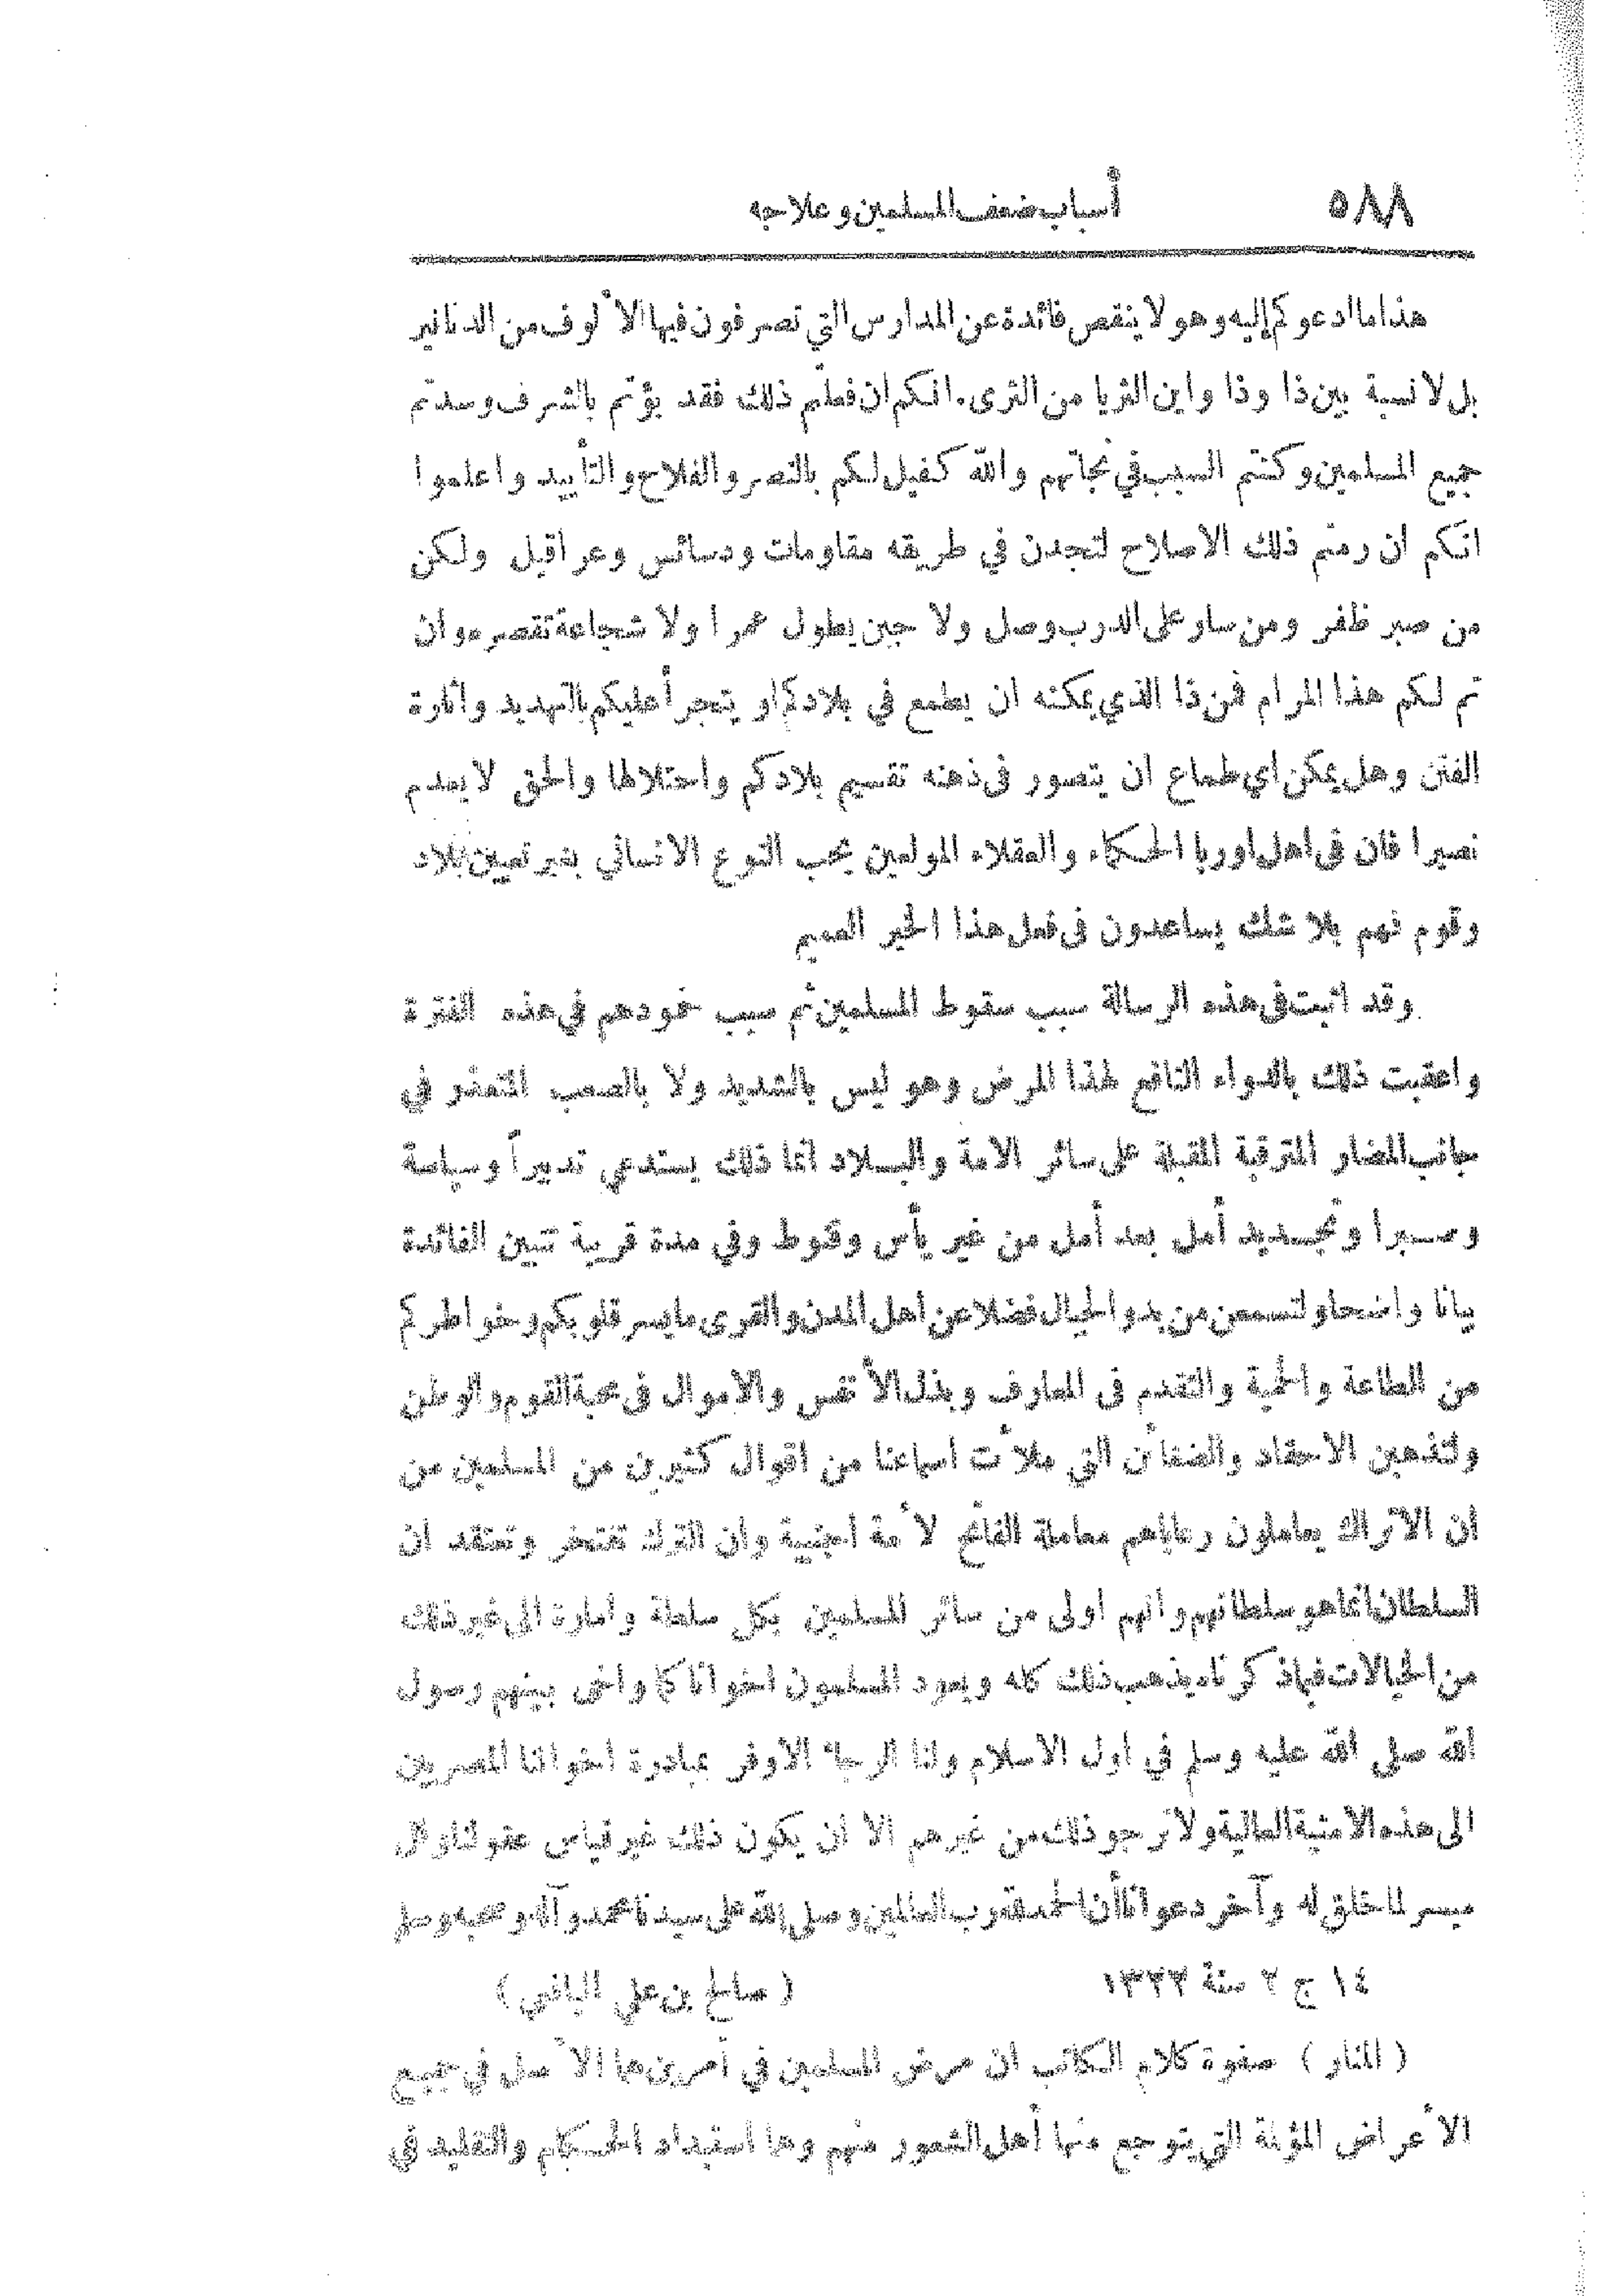 ٥٨٨ أسباب ضعف المسلمين وعلاجه
هذا ما ادعوكم إليه وهو لا ينقص فائدة عن المدارس التي تصرفون فيها الألوف من الدنانير
بل لا نسبة بين ذا وذا واين الثريا من الثرى . انكم ان فعلتم ذلك فقد بؤتم بالشرف وسدتم
جميع المسلمين وكنتم السبب في نجاتهم والله كفيل لكم بالنصر والفلاح والتأييد واعلموا
انكم ان رمتم ذلك الاصلاح لتجدن في طريقه مقاومات ودسائس وعراقيل ولكن
من صبر ظفر ومن سار على الدرب وصل ولا جبن يطول عمرا ولا شجاعة تقصره وان
تم لكم هذا المرام فمن ذا الذي يمكنه ان يطمع في بلادكم او يتجرأ عليكم بالتهديد واثارة
الفتن وهل يمكن اي طماع ان يتصور في ذهنه تقسيم بلادكم واحتلالها والحق لا يعدم
نصيرا فان في اهل اوربا الحكماء والعقلاء المولعين بحب النوع الانساني بغير تعيين بلاد
وقوم فهم بلا شك يساعدون في فعل هذا الخير العميم
وقد اثبت في هذه الرسالة سبب سقوط المسلمين ثم سبب خمودهم في هذه الفترة
واعقبت ذلك بالدواء النافع لهذا المرض وهو ليس بالشديد ولا بالصعب المتعذر في
جانب المضار المترقبة المقبلة على سائر الامة والبـلاد انما ذلك يستدعي تدبيراً وسياسة
وصـبرا وتجـديد أمل بعد أمل من غير يأس وقنوط وفي مدة قريبة تتبين الفائدة
بيانا واضحا ولتسمعن من بدو الجبال فضلا عن اهل المدن والقرى ما يسر قلوبكم وخواطركم
من الطاعة والحمية والتقدم في المعارف وبذل الأنفس والاموال في محبة القوم والوطن
ولتذهبن الاحقاد والضغائن التي ملأت اسماعنا من اقوال كثيرين من المسلمين من
ان الاتراك يعاملون رعاياهم معاملة الفاتح لأمة اجنبية وان الترك تفتخر وتعتقد ان
السلطان انما هو سلطانهم وانهم اولى من سائر المسلمين بكل سلطة وامارة الى غير ذلك
من الخيالات فبما ذكرناه يذهب ذلك كله ويعود المسلمون اخوانا كما واخى بينهم رسول
الله صلى الله عليه وسلم في اول الاسلام ولنا الرجاء الاوفر بمبادرة اخواننا المصريين
الى هذه الامنية العالية ولا نرجو ذلك من غيرهم الا ان يكون ذلك غير قياس عقولنا وكل
ميسر لما خلق له وآخر دعوانا أن الحمد لله رب العالمين وصلى الله على سيدنا محمد وآله وصحبه وسلم
١٤ ج ٢ سنة ١٣٢٣ ( صالح بن علي اليافعي )
( المنار ) صفوة كلام الكاتب ان مرض المسلمين في أمرين هما الأصل في جميع
الأعراض المؤلمة التي يتوجع منها أهل الشعور منهم وهما استبداد الحـكام والتقليد في